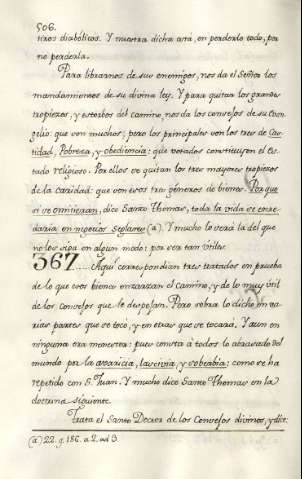 506.
tiros diabólicos. Y nuestra dicha está, en perderlo todo, por
no perderla.
Para librarnos de sus enemigos, nos da el Señor los
mandamientos de su divina ley. Y para quitar los grandes
tropiezos, y estorbos del camino, nos da los consejos de su Evan
gelio: que son muchos; pero los principales son los tres de Cas
tidad, Pobreza, y obediencia: que votados constituyen el Es
tado religioso. Por ellos se quitan los tres mayores tropiezos
de la caridad: que son esos tres géneros de bienes. Porque
si se omitieran, dice Santo Thomas, toda la vida se
en negocios seglares (a). Y mucho lo será la del que
no los siga en algun modo; por ser tan útiles.
367 Aquí correspondian tres tratados en prueba
de lo que esos bienes embarazan el camino, y de lo muy útil
de los consejos que le despojan. Pero sobra lo dicho en va
rias partes que se toco, y en otras que se tocará. Y aun en
ninguna era menester: pues consta á todos lo abrasado del
mundo por la avaricia, lascivia, y soberbia: como se ha
repetido con S. Juan. Y mucho dice Santo Thomas en la
doctrina siguiente.
Trata el Santo Doctor de los Consejos divinos, y dice:
(a) 22. q. 186. a. 2. ad 3.